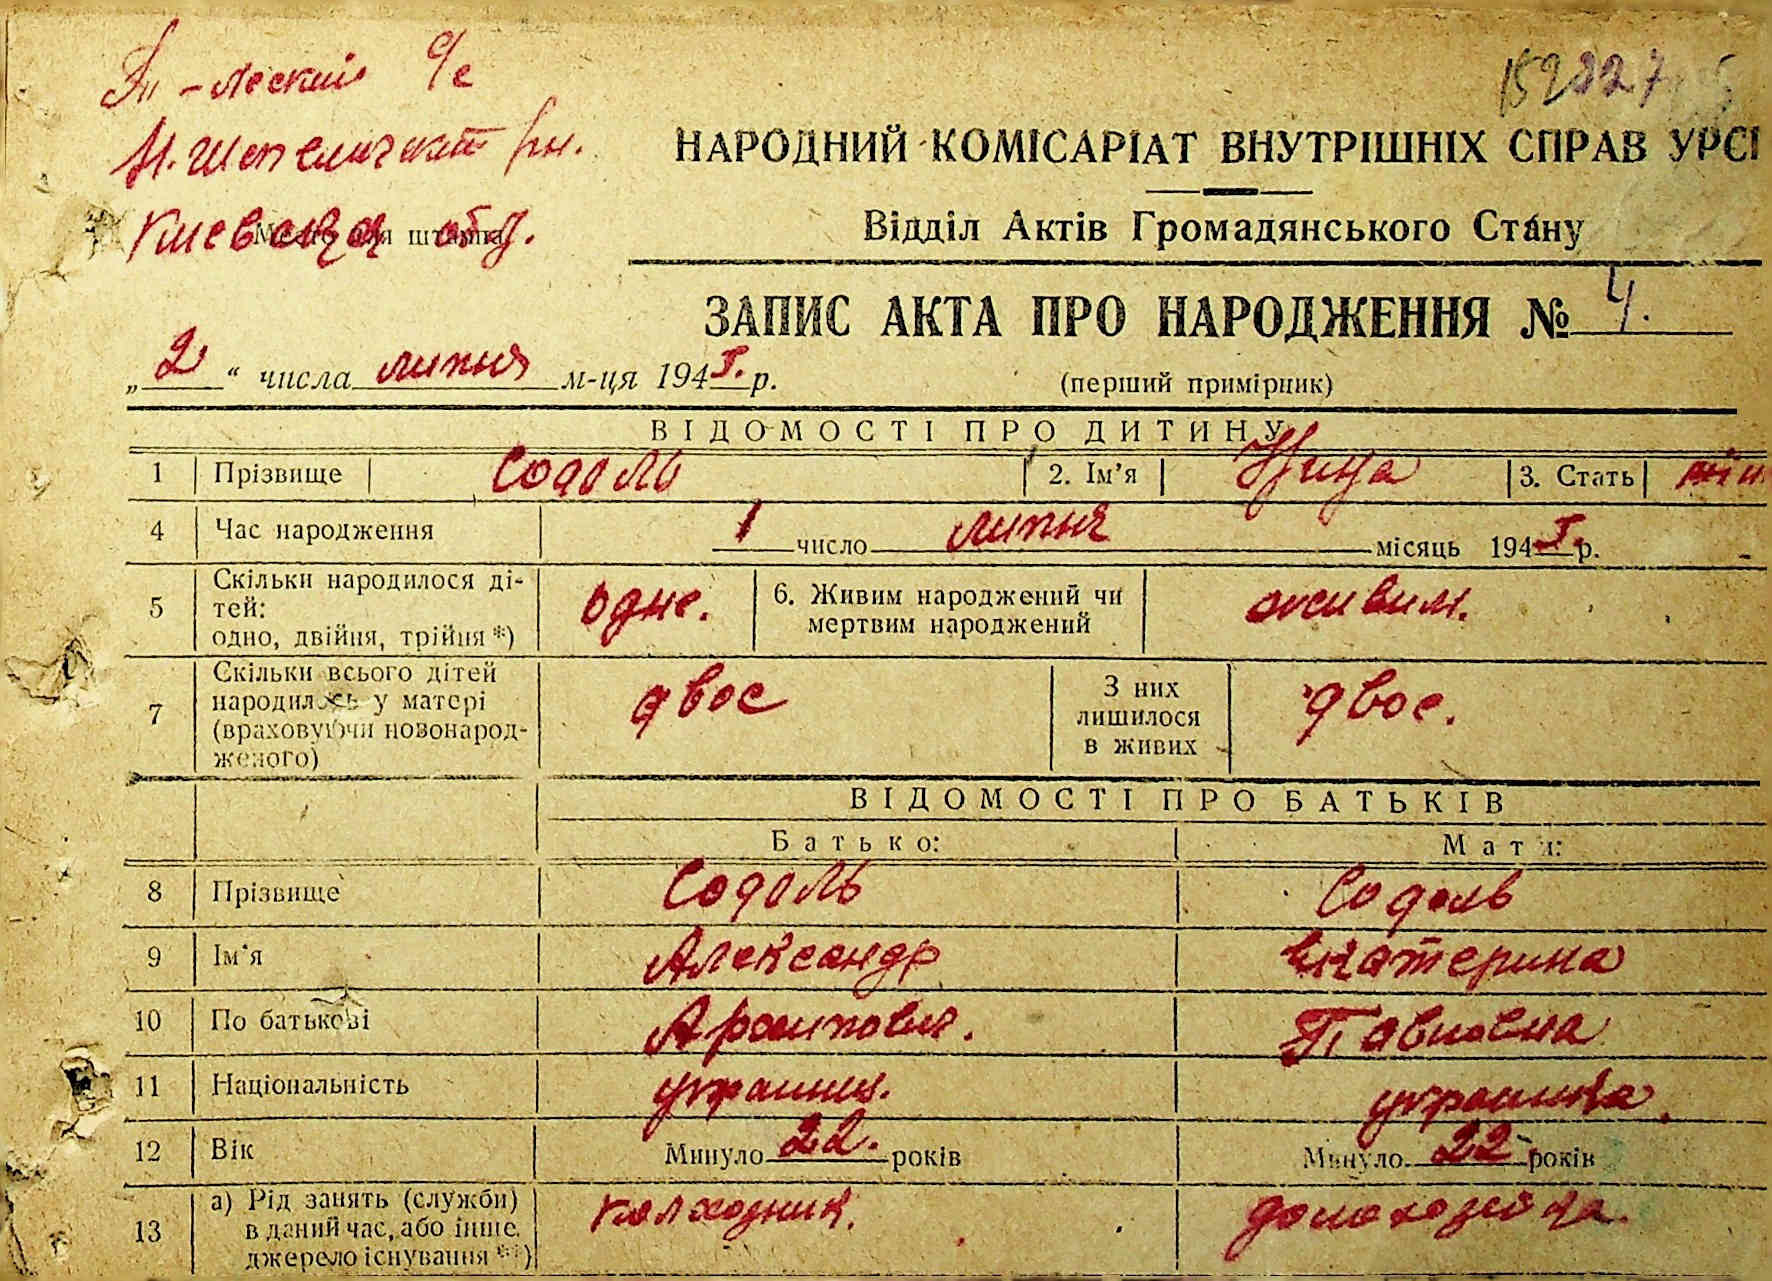 с/с
Н. Шепеличский рн.
Киевская обл.
Место для штампа
НАРОДНИЙ КОМІСАРІАТ ВНУТРІШНІХ СПРАВ УРСР
Відділ Актів Громадянського Стану
ЗАПИС АКТА ПРО НАРОДЖЕННЯ № 4.
„2“ числа липня м-ця 194 р.
(перший примірник)
ВІДОМОСТІ ПРО ДИТИНУ
1 Прізвище Содоль 2. Ім’я Нина 3. Стать
4 Час народження 1 число липня місяць 194 р.
5 Скільки народилося ді-
тей:
одно, двійня, трійня*) одне. 6. Живим народжений чи
мертвим народжений живим.
7 Скільки всього дітей
народилось у матері
(враховуючи новонарод-
женого) двое З них
лишилося
в живих двое.
ВІДОМОСТІ ПРО БАТЬКІВ
Батько: Мати:
8 Прізвище Содоль Содоль
9 Ім’я Александр Екатерина
10 По батькові Архипович. Павловна
11 Національність украинец. украинка.
12 Вік Минуло 22. років Минуло 22 років
13 а) Рід занять (служби)
в даний час, або інше
джерело існування **) колхозник. домохозейка.